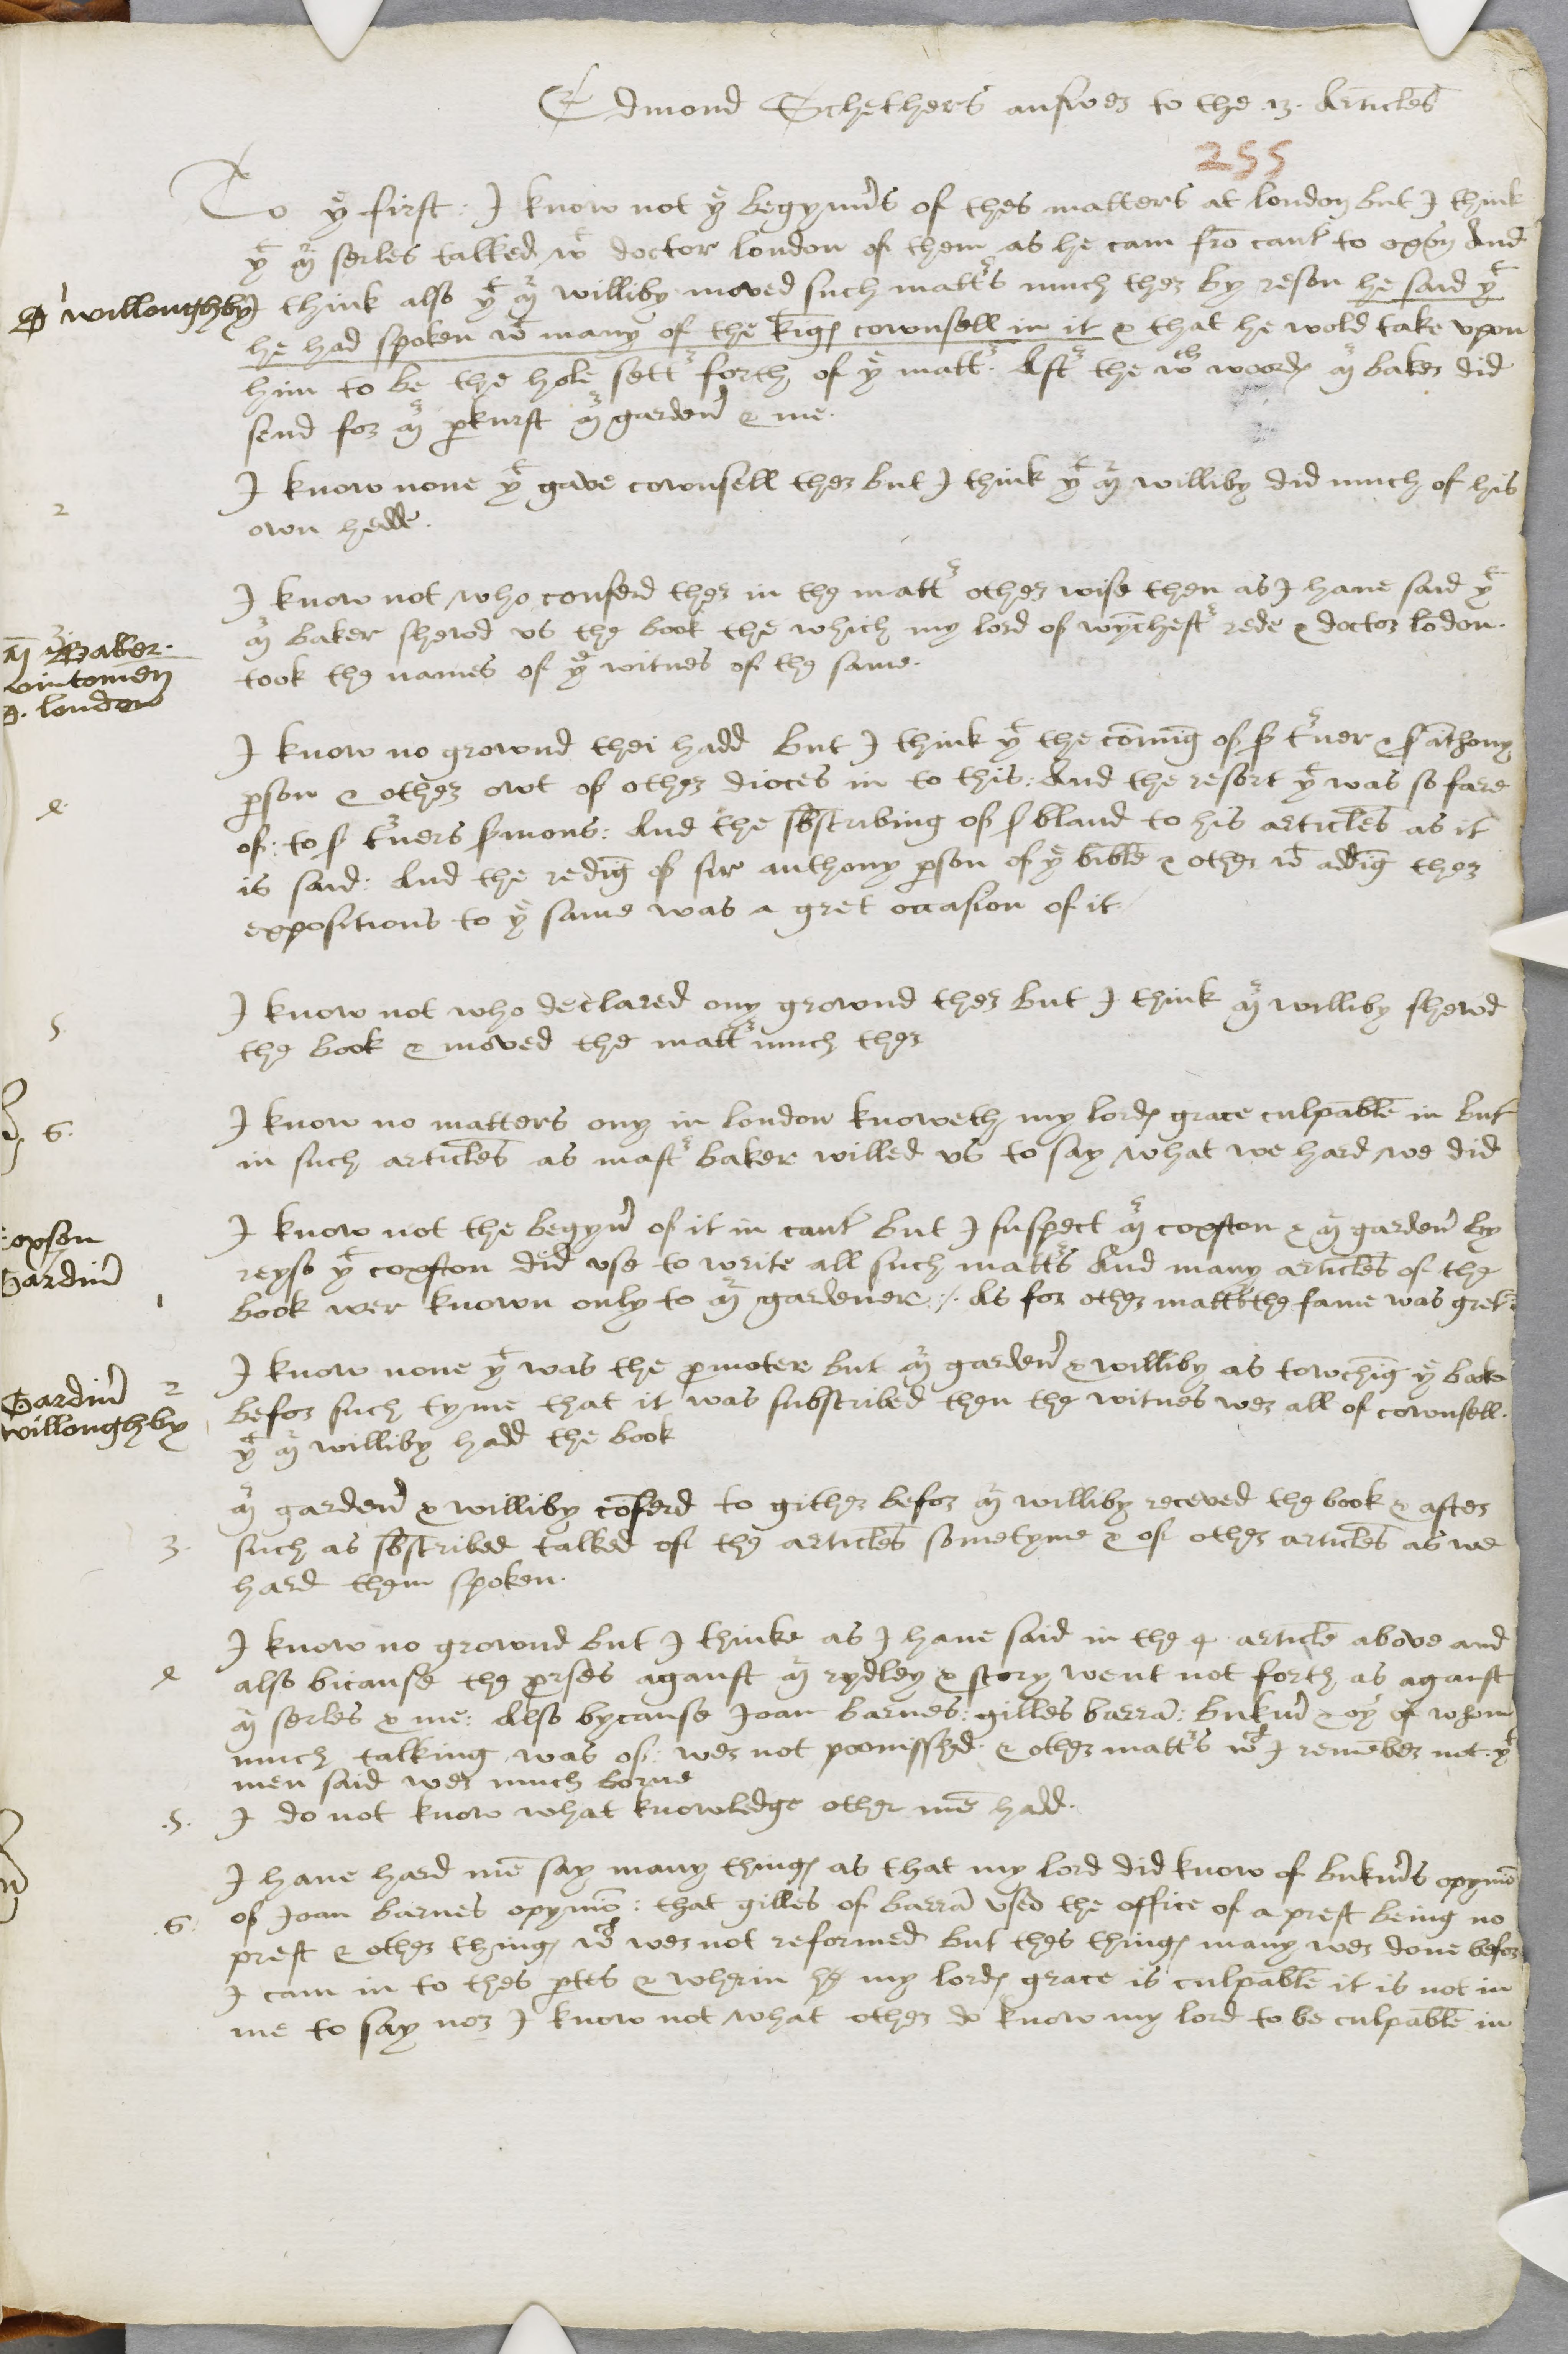 Edmond Schethers answer to the 13. Articles
255
To yͤ first: I know not yͤ begynn's of thes matters at london but I think
yͭ mʳ serles talked wᵗ doctor london of them as he cam frō cant' to oxford And
D' willoughby
I think also yͭ mʳ williby moved such mattʳs much ther by reson he said yͭ
he had spoken wᵗ many of the kīgs cownsell in it & that he wold take vpon
him to be the hole settʳ forth of yͤ mattʳ. Aftʳ the wᶜʰ woordꝭ mʳ baker did
send for mʳ pkurst mʳ garden' & me.
2
I know none yͭ gave cownsell ther but I think yͭ mʳ williby did much of his
own hedde.
I know not who conferd ther in the mattʳ other wise then as I haue said yͭ
mʳ Baker.
wintonien
D. london
mʳ baker shewd vs the book the which my lord of wȳchestʳ rede & doctor lōdon.
took the names of yͤ witnes of the same.
4
I know no grownd thei hadd but I think yͭ the cōmīg of sʳ tʳner & sʳ āthony
pson & other owt of other dioces in to this: And the resort yͭ was so farre
of: to sʳ tʳners smons: And the sbscribing of sʳ bland to his articles as it
is said: And the redīg of sir anthony pson of yͤ bible & other wᵗ addīg ther
expositions to yͤ same was a gret occasion of it
5
I know not who declared ony grownd ther but I think mʳ williby shewd
the book & moved the mattʳ much ther
6.
I know no matters ony in london knoweth my lordꝭ grace culpable in but
in such articles as mastʳ baker willed vs to say what we hard we did
Coxson
Gardin'
1
I know not the begyn' of it in cant' but I suspect mʳ coxston & mʳ garden' by
reyso yͭ coxston did vse to write all such mattʳs And many articles of the
book wer known only to mʳ gardener :/. As for other mattʳs the fame was gret.
Gardin'
willoughby
2
I know none yͭ was the pmoter but mʳ garden' & williby as towchīg yͤ book
befor such tyme that it was subscribed then the witnes wer all of cownsell.
yͭ mʳ williby hadd the book
3.
mʳ garden' & williby cōferd to gither befor mʳ williby receved the book & after
such as sbscribed talked of the articles sometyme & of other articles as we
hard them spoken.
4
I know no grownd but I thinke as I haue said in the 4 article above and
also bicause the pcses aganst mʳ rydley & scory went not forth as aganst
mʳ serles & me: Also bycause Joan Barnes: gilles barrā: bukm' & oy' of whom
much talking was of: wer not poonisshed. & other mattʳs wᶜʰ I remēber not. yͭ
men said wer much borne
.5.
I do not know what knowledge other mē hadd.
.6.
I haue hard mē say many thingꝭ as that my lord did know of bukm's opyniō
of Joan barnes opyniō: that gilles of barrā vsed the office of a prest being no
prest & other thingꝭ wᶜʰ wer not reformed but thes thingꝭ many wer done befor
I cam in to thes ptes & wherin my lordꝭ grace is culpable it is not in
me to say nor I know not what other do know my lord to be culpable in